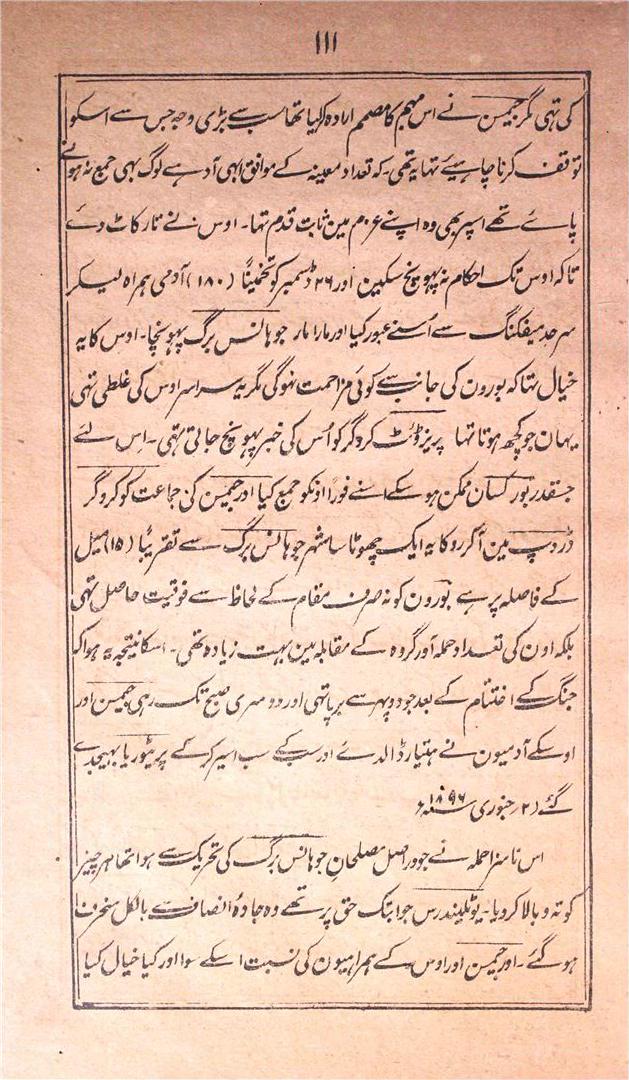 ۱۱۱
کی تہی مگر جیمسن نے اس مہم کا مصمم ارادہ کر لیا تھا سب سے بڑی وجہ جس سے اسکو
توقف کرنا چاہیئے تہا یہ تھی ۔ کہ تعداد معینہ کے موافق ابھی آدہے لوگ بھی جمع نہ ہونے
پائے تھے اسپر بھی وہ اپنے عزم مین ثابت قدم تہا ۔ اوس نے تار کاٹ دئے
تاکہ اوس تک احکام نہ پہونچ سکین اور ۲۶ ڈسمبر کو تخمیناً (۱۸۰) آدمی ہمراہ لیکر
سرحد میفکنگ سے اُسنے عبور کیا اور مارا مار جوہانس برگ پہونچا ۔ اوس کا یہ
خیال تہا کہ بورون کی جانب سے کوئی مزاحمت نہوگی مگر یہ سراسر اوس کی غلطی تہی
یہان جو کچھ ہوتا تہا پریزیڈنٹ کروگر کو اُس کی خبر پہونچ جاتی تہی ۔ اِس لئے
جسقدر بور کسان ممکن ہو سکے اسنے فوراً اونکو جمع کیا اور جیمسن کی جماعت کو کروگر
ڈروپ مین آکر روکا یہ ایک چھوٹا سا شہر جوہانس برگ سے تقریباً (۱۵) میل
کے فاصلہ پر ہے بورون کو نہ صرف مقام کے لحاظ سے فوقیت حاصل تہی
بلکہ اون کی تعداد حملہ آور گروہ کے مقابلہ مین بہت زیادہ تھی ۔ اسکا نتیجہ یہ ہوا کہ
جنگ کے اختتام کے بعد جو دوپہر سے برپا تہی اور دوسری صبح تک رہی جیمسن اور
اوسکے آدمیون نے ہتیار ڈالدئے اور سب کے سب اسیر کرکے پریٹوریا بہیجدے
گئے (۲؍ جنوری ۱۸۹۶ء)
اس ناسزا حملہ نے جو دراصل مصلحانِ جوہانس برگ کی تحریک سے ہوا تھا ہر چیز
کو تہ و بالا کر دیا ۔ یوٹلینڈرس جو ابتک حق پر تھے وہ جادۂ انصاف سے بالکل منحرف
ہو گئے ۔ اور جیمسن اور اوس کے ہمراہیون کی نسبت اسکے سوا اور کیا خیال کیا